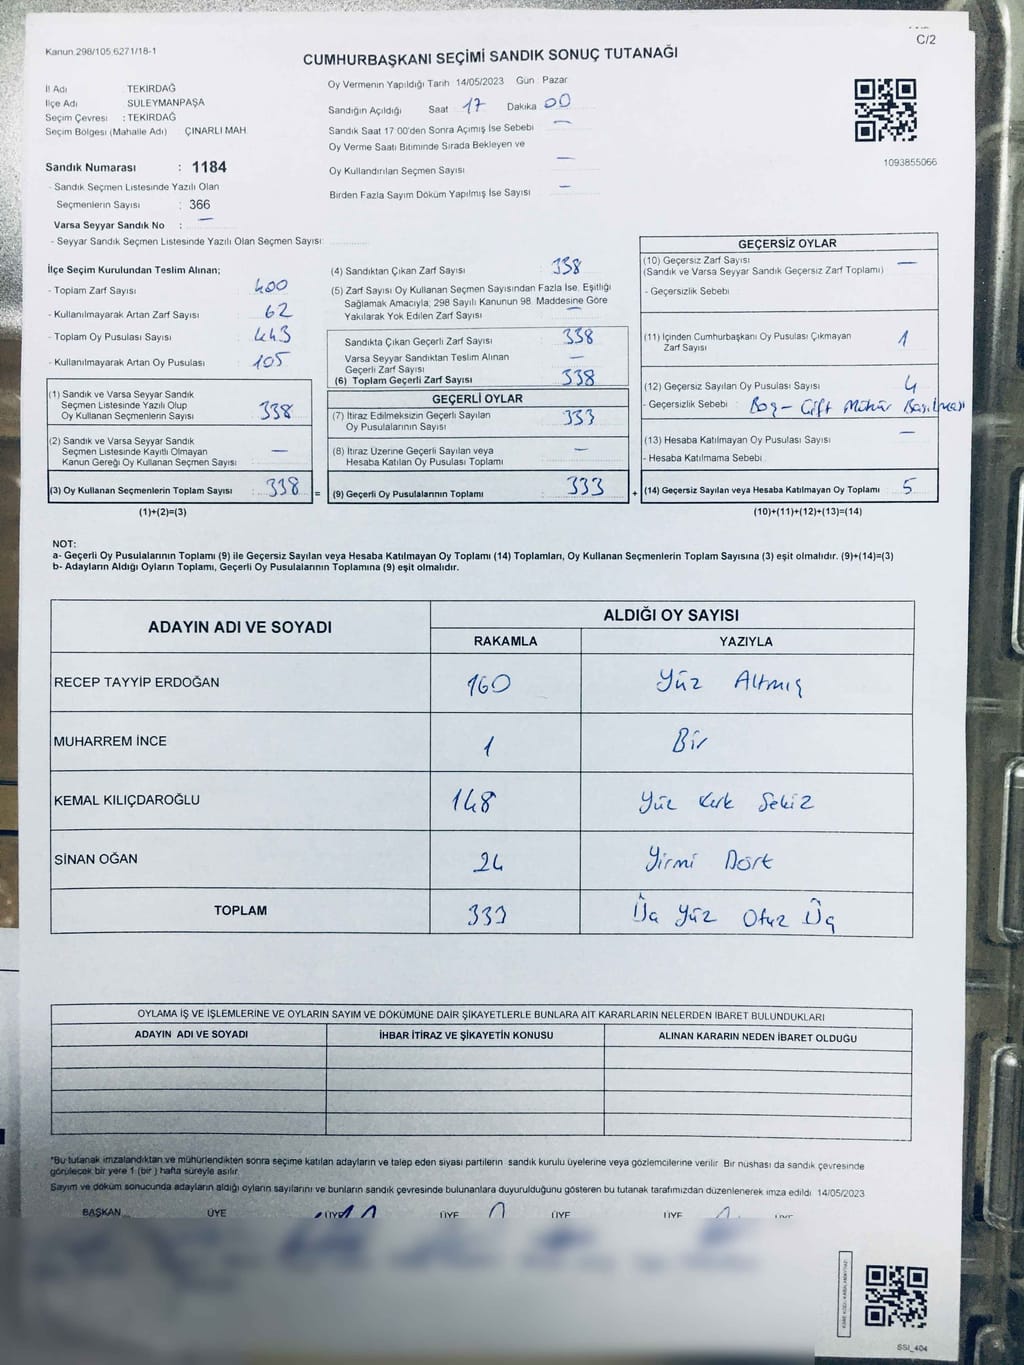 C/2
Kanun.298/105,6271/18-1
CUMHURBAŞKANI SEÇİMİ SANDIK SONUÇ TUTANAĞI
İl Adı : TEKİRDAĞ
İlçe Adı : SÜLEYMANPAŞA
Seçim Çevresi : TEKİRDAĞ
Seçim Bölgesi (Mahalle Adı) : ÇINARLI MAH.
Sandık Numarası : 1184
- Sandık Seçmen Listesinde Yazılı Olan
Seçmenlerin Sayısı : 366
Varsa Seyyar Sandık No : —
- Seyyar Sandık Seçmen Listesinde Yazılı Olan Seçmen Sayısı:
Oy Vermenin Yapıldığı Tarih 14/05/2023 Gün : Pazar
Sandığın Açıldığı Saat 17 Dakika 00
Sandık Saat 17:00'den Sonra Açımış İse Sebebi —
Oy Verme Saati Bitiminde Sırada Bekleyen ve
Oy Kullandırılan Seçmen Sayısı —
Birden Fazla Sayım Döküm Yapılmış İse Sayısı —
1093855066
İlçe Seçim Kurulundan Teslim Alınan;
- Toplam Zarf Sayısı : 400
- Kullanılmayarak Artan Zarf Sayısı : 62
- Toplam Oy Pusulası Sayısı : 443
- Kullanılmayarak Artan Oy Pusulası : 105
(1) Sandık ve Varsa Seyyar Sandık
Seçmen Listesinde Yazılı Olup
Oy Kullanan Seçmenlerin Sayısı : 338
(2) Sandık ve Varsa Seyyar Sandık
Seçmen Listesinde Kayıtlı Olmayan
Kanun Gereği Oy Kullanan Seçmen Sayısı : —
(3) Oy Kullanan Seçmenlerin Toplam Sayısı : 338 =
(1)+(2)=(3)
(4) Sandıktan Çıkan Zarf Sayısı : 338
(5) Zarf Sayısı Oy Kullanan Seçmen Sayısından Fazla İse, Eşitliği
Sağlamak Amacıyla; 298 Sayılı Kanunun 98. Maddesine Göre
Yakılarak Yok Edilen Zarf Sayısı : —
Sandıkta Çıkan Geçerli Zarf Sayısı : 338
Varsa Seyyar Sandıktan Teslim Alınan
Geçerli Zarf Sayısı : —
(6) Toplam Geçerli Zarf Sayısı : 338
GEÇERLİ OYLAR
(7) İtiraz Edilmeksizin Geçerli Sayılan
Oy Pusulalarının Sayısı : 333
(8) İtiraz Üzerine Geçerli Sayılan veya
Hesaba Katılan Oy Pusulası Toplamı : —
(9) Geçerli Oy Pusulalarının Toplamı : 333 +
GEÇERSİZ OYLAR
(10) Geçersiz Zarf Sayısı —
(Sandık ve Varsa Seyyar Sandık Geçersiz Zarf Toplamı)
- Geçersizlik Sebebi :
(11) İçinden Cumhurbaşkanı Oy Pusulası Çıkmayan
Zarf Sayısı 1
(12) Geçersiz Sayılan Oy Pusulası Sayısı 4
- Geçersizlik Sebebi : Boş - Çift Mühür Basılması
(13) Hesaba Katılmayan Oy Pusulası Sayısı —
- Hesaba Katılmama Sebebi :
(14) Geçersiz Sayılan veya Hesaba Katılmayan Oy Toplamı : 5
(10)+(11)+(12)+(13)=(14)
NOT:
a- Geçerli Oy Pusulalarının Toplamı (9) ile Geçersiz Sayılan veya Hesaba Katılmayan Oy Toplamı (14) Toplamları, Oy Kullanan Seçmenlerin Toplam Sayısına (3) eşit olmalıdır. (9)+(14)=(3)
b- Adayların Aldığı Oyların Toplamı, Geçerli Oy Pusulalarının Toplamına (9) eşit olmalıdır.
ADAYIN ADI VE SOYADI ALDIĞI OY SAYISI
RAKAMLA YAZIYLA
RECEP TAYYİP ERDOĞAN 160 Yüz Altmış
MUHARREM İNCE 1 Bir
KEMAL KILIÇDAROĞLU 148 Yüz Kırk Sekiz
SİNAN OĞAN 24 Yirmi Dört
TOPLAM 333 Üç Yüz Otuz Üç
OYLAMA İŞ VE İŞLEMLERİNE VE OYLARIN SAYIM VE DÖKÜMÜNE DAİR ŞİKAYETLERLE BUNLARA AİT KARARLARIN NELERDEN İBARET BULUNDUKLARI
ADAYIN ADI VE SOYADI İHBAR İTİRAZ VE ŞİKAYETİN KONUSU ALINAN KARARIN NEDEN İBARET OLDUĞU
*Bu tutanak imzalandıktan ve mühürlendikten sonra seçime katılan adayların ve talep eden siyasi partilerin sandık kurulu üyelerine veya gözlemcilerine verilir. Bir nüshası da sandık çevresinde
görülecek bir yere 1 (bir ) hafta süreyle asılır.
Sayım ve döküm sonucunda adayların aldığı oyların sayılarını ve bunların sandık çevresinde bulunanlara duyurulduğunu gösteren bu tutanak tarafımızdan düzenlenerek imza edildi. 14/05/2023
BAŞKAN ÜYE ÜYE ÜYE ÜYE ÜYE ÜYE
SSI_404